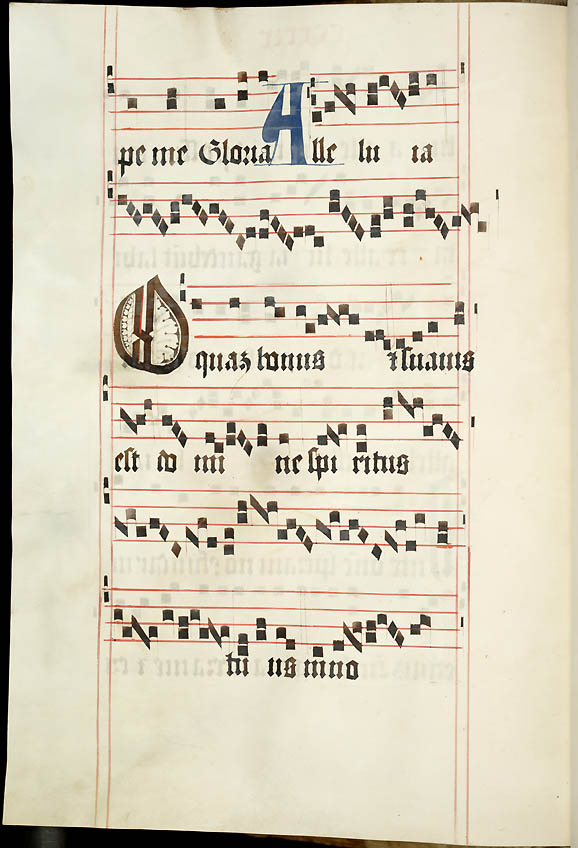 pe me Gloria Alle lu ia
O quaʒ bonus ⁊ suauis
est do mi ne spi ritus
tu us in no